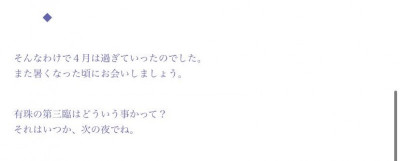 ◆
そんなわけで４月は過ぎていったのでした。
また暑くなった頃にお会いしましょう。
有珠の第三臨はどういう事かって？
それはいつか、次の夜でね。